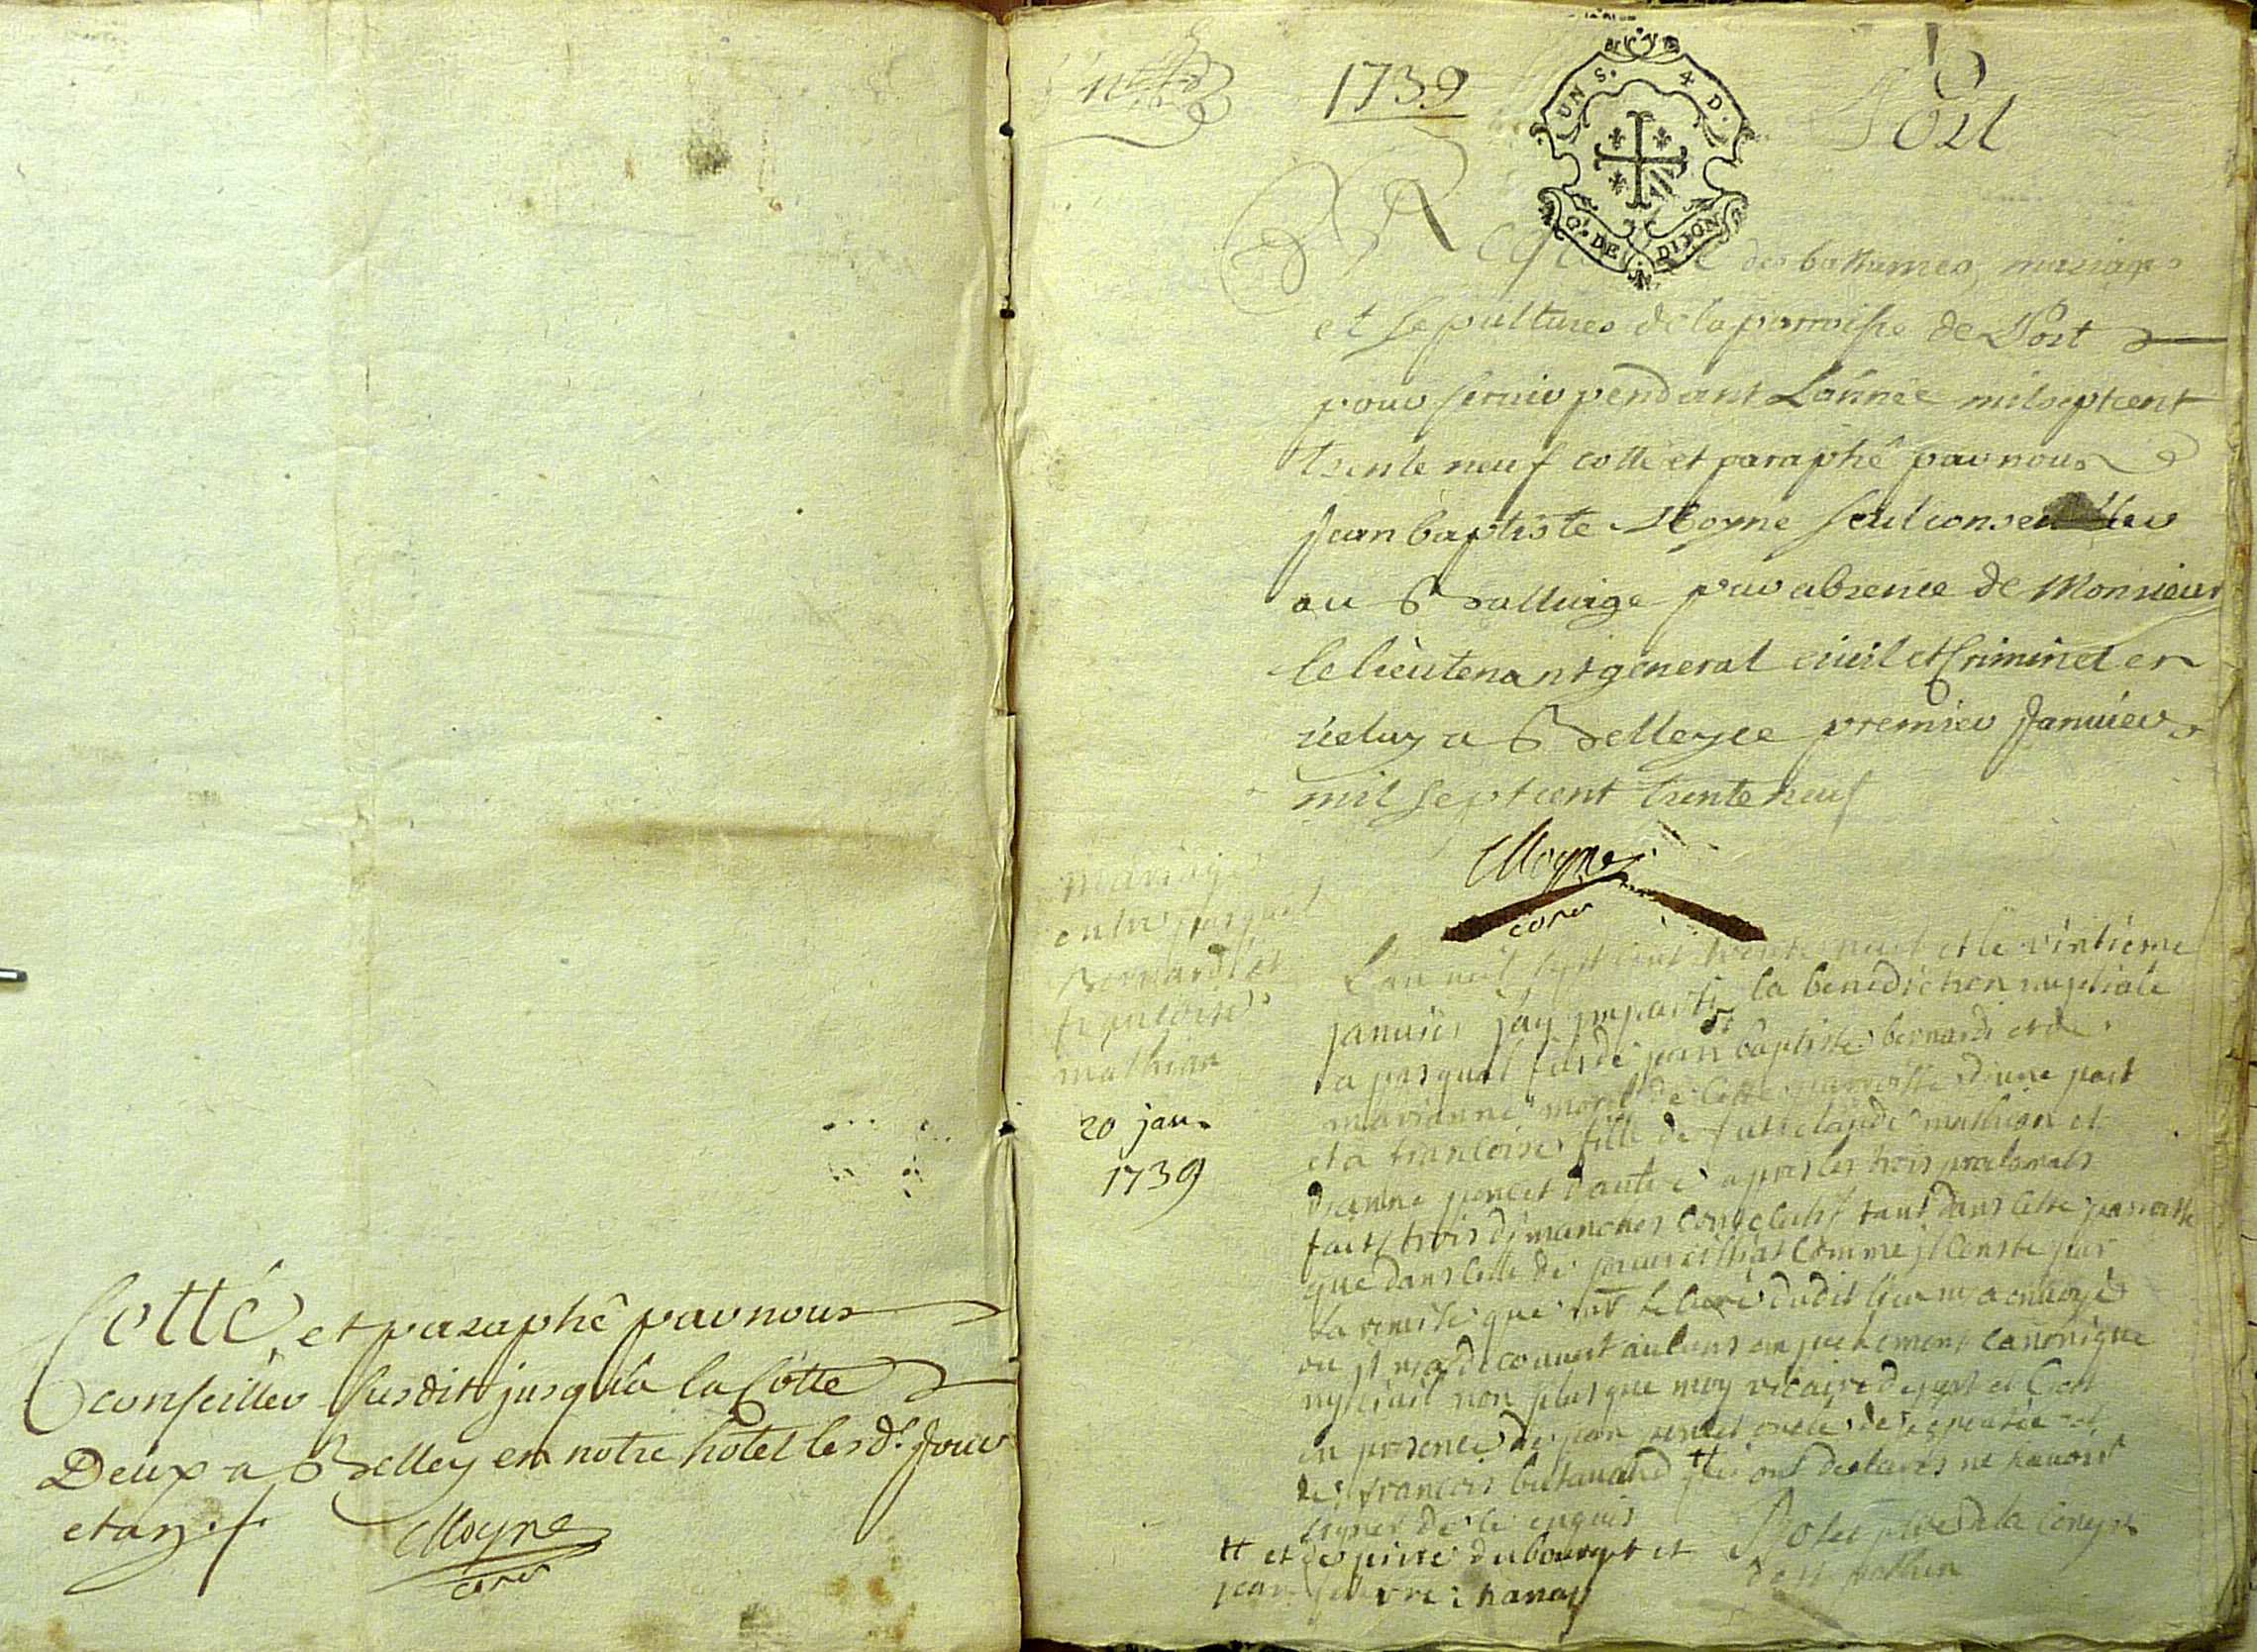 Cotté et paraphé par nous
conseiller susdit jusqu'a la Cotte
Deux a Belley en notre hotel lesd. Jour
et an ./.
Moyne
coner
1739
UN S. 4 D.
G. DE DIJON
Port
R des battemes, mariages
et sepultures de la parroisse de Port
pour servir pendant L'année mil sept cent
trente neuf cotté et paraphé par nous
Jean baptiste Moyne seul conseiller
au Balliage par absence de Monsieur
le lieutenant general civil et Criminel en
iceluy a Belley ce premier Janvier
mil sept cent trente neuf
Moyne
coner
mariage
entre pasqual
Bernard et
françoise
mathian
20 jan.
1739
L'an mil sept cent trente neuf et le vintième
janvier j'ay imparti la benediction nuptiale
a pasqual fils de jean baptiste bernard et de
marianne morel de cette parroisse d'une part
et a françoise fille de fut claude mathian et
d'autre après les trois proclamats
faits trois dimanches consecutifs tant dans cette parroisse
que dans celle de comme il conste par
la remise que mr le curé dudit lieu m'a envoyé
ou il n'a decouvert aucuns empechement canonique
ny civil non plus que moy vicaire de port et c'est
en presence de jean
de françois ## qui ont declarés ne savoir
signer de ce enquis
## et de pierre du bourget et
jean